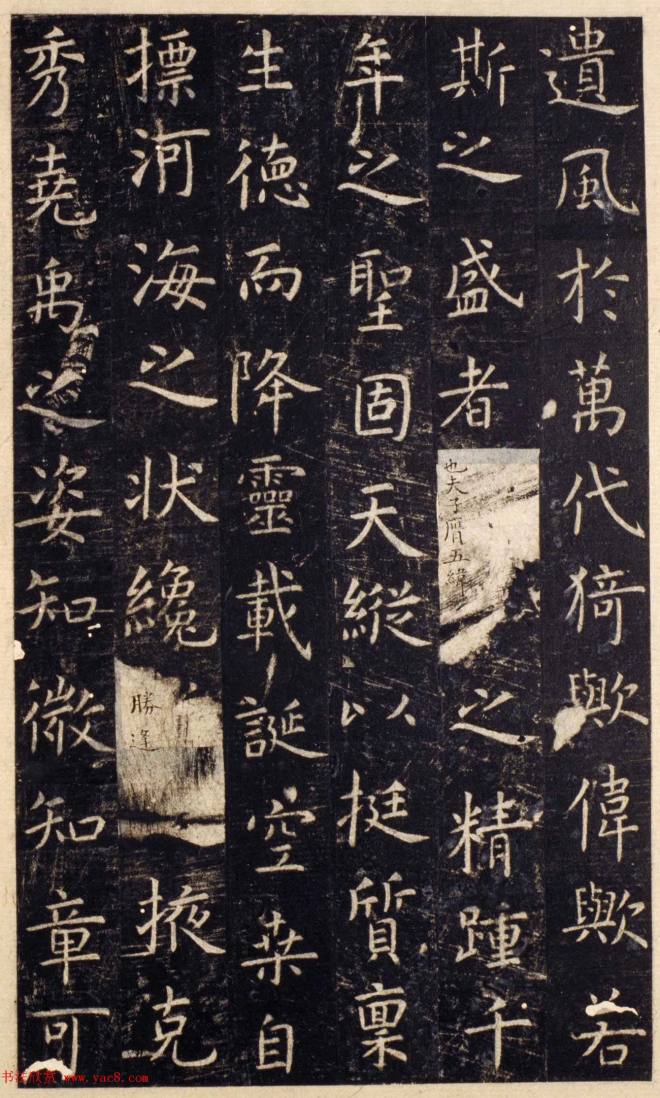 遺風於萬代猗歟偉歟若
斯之盛者也夫子膺五緯之精踵千
年之聖固天縱以挺質稟
生德而降靈載誕空桒自
摽河海之狀纔勝逢掖克
秀堯禹之姿知微知章可
书法欣赏 www.yac8.com